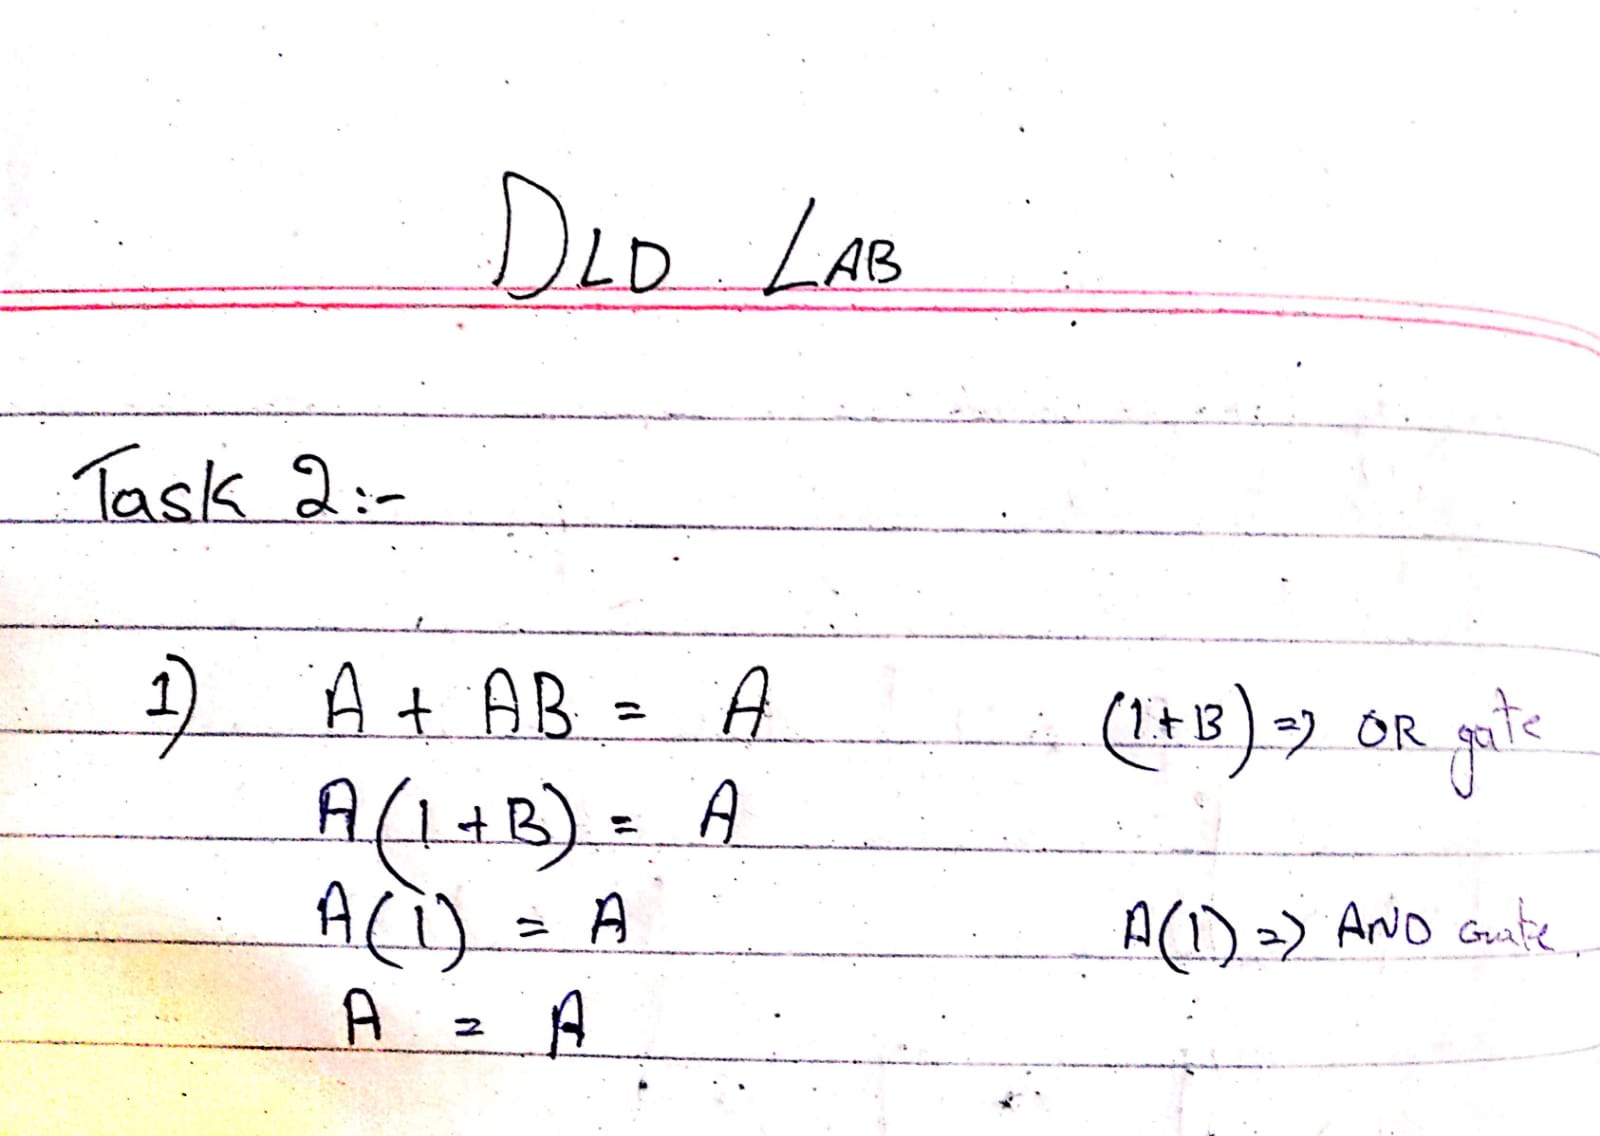 DLD LAB
Task 2:-
1) A + AB = A (1+B) => OR gate
A(1+B) = A
A(1) = A A(1) => AND Gate
A = A